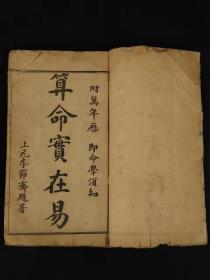 附萬年歷　即命學須知
算命實在易
上元李節齋題署